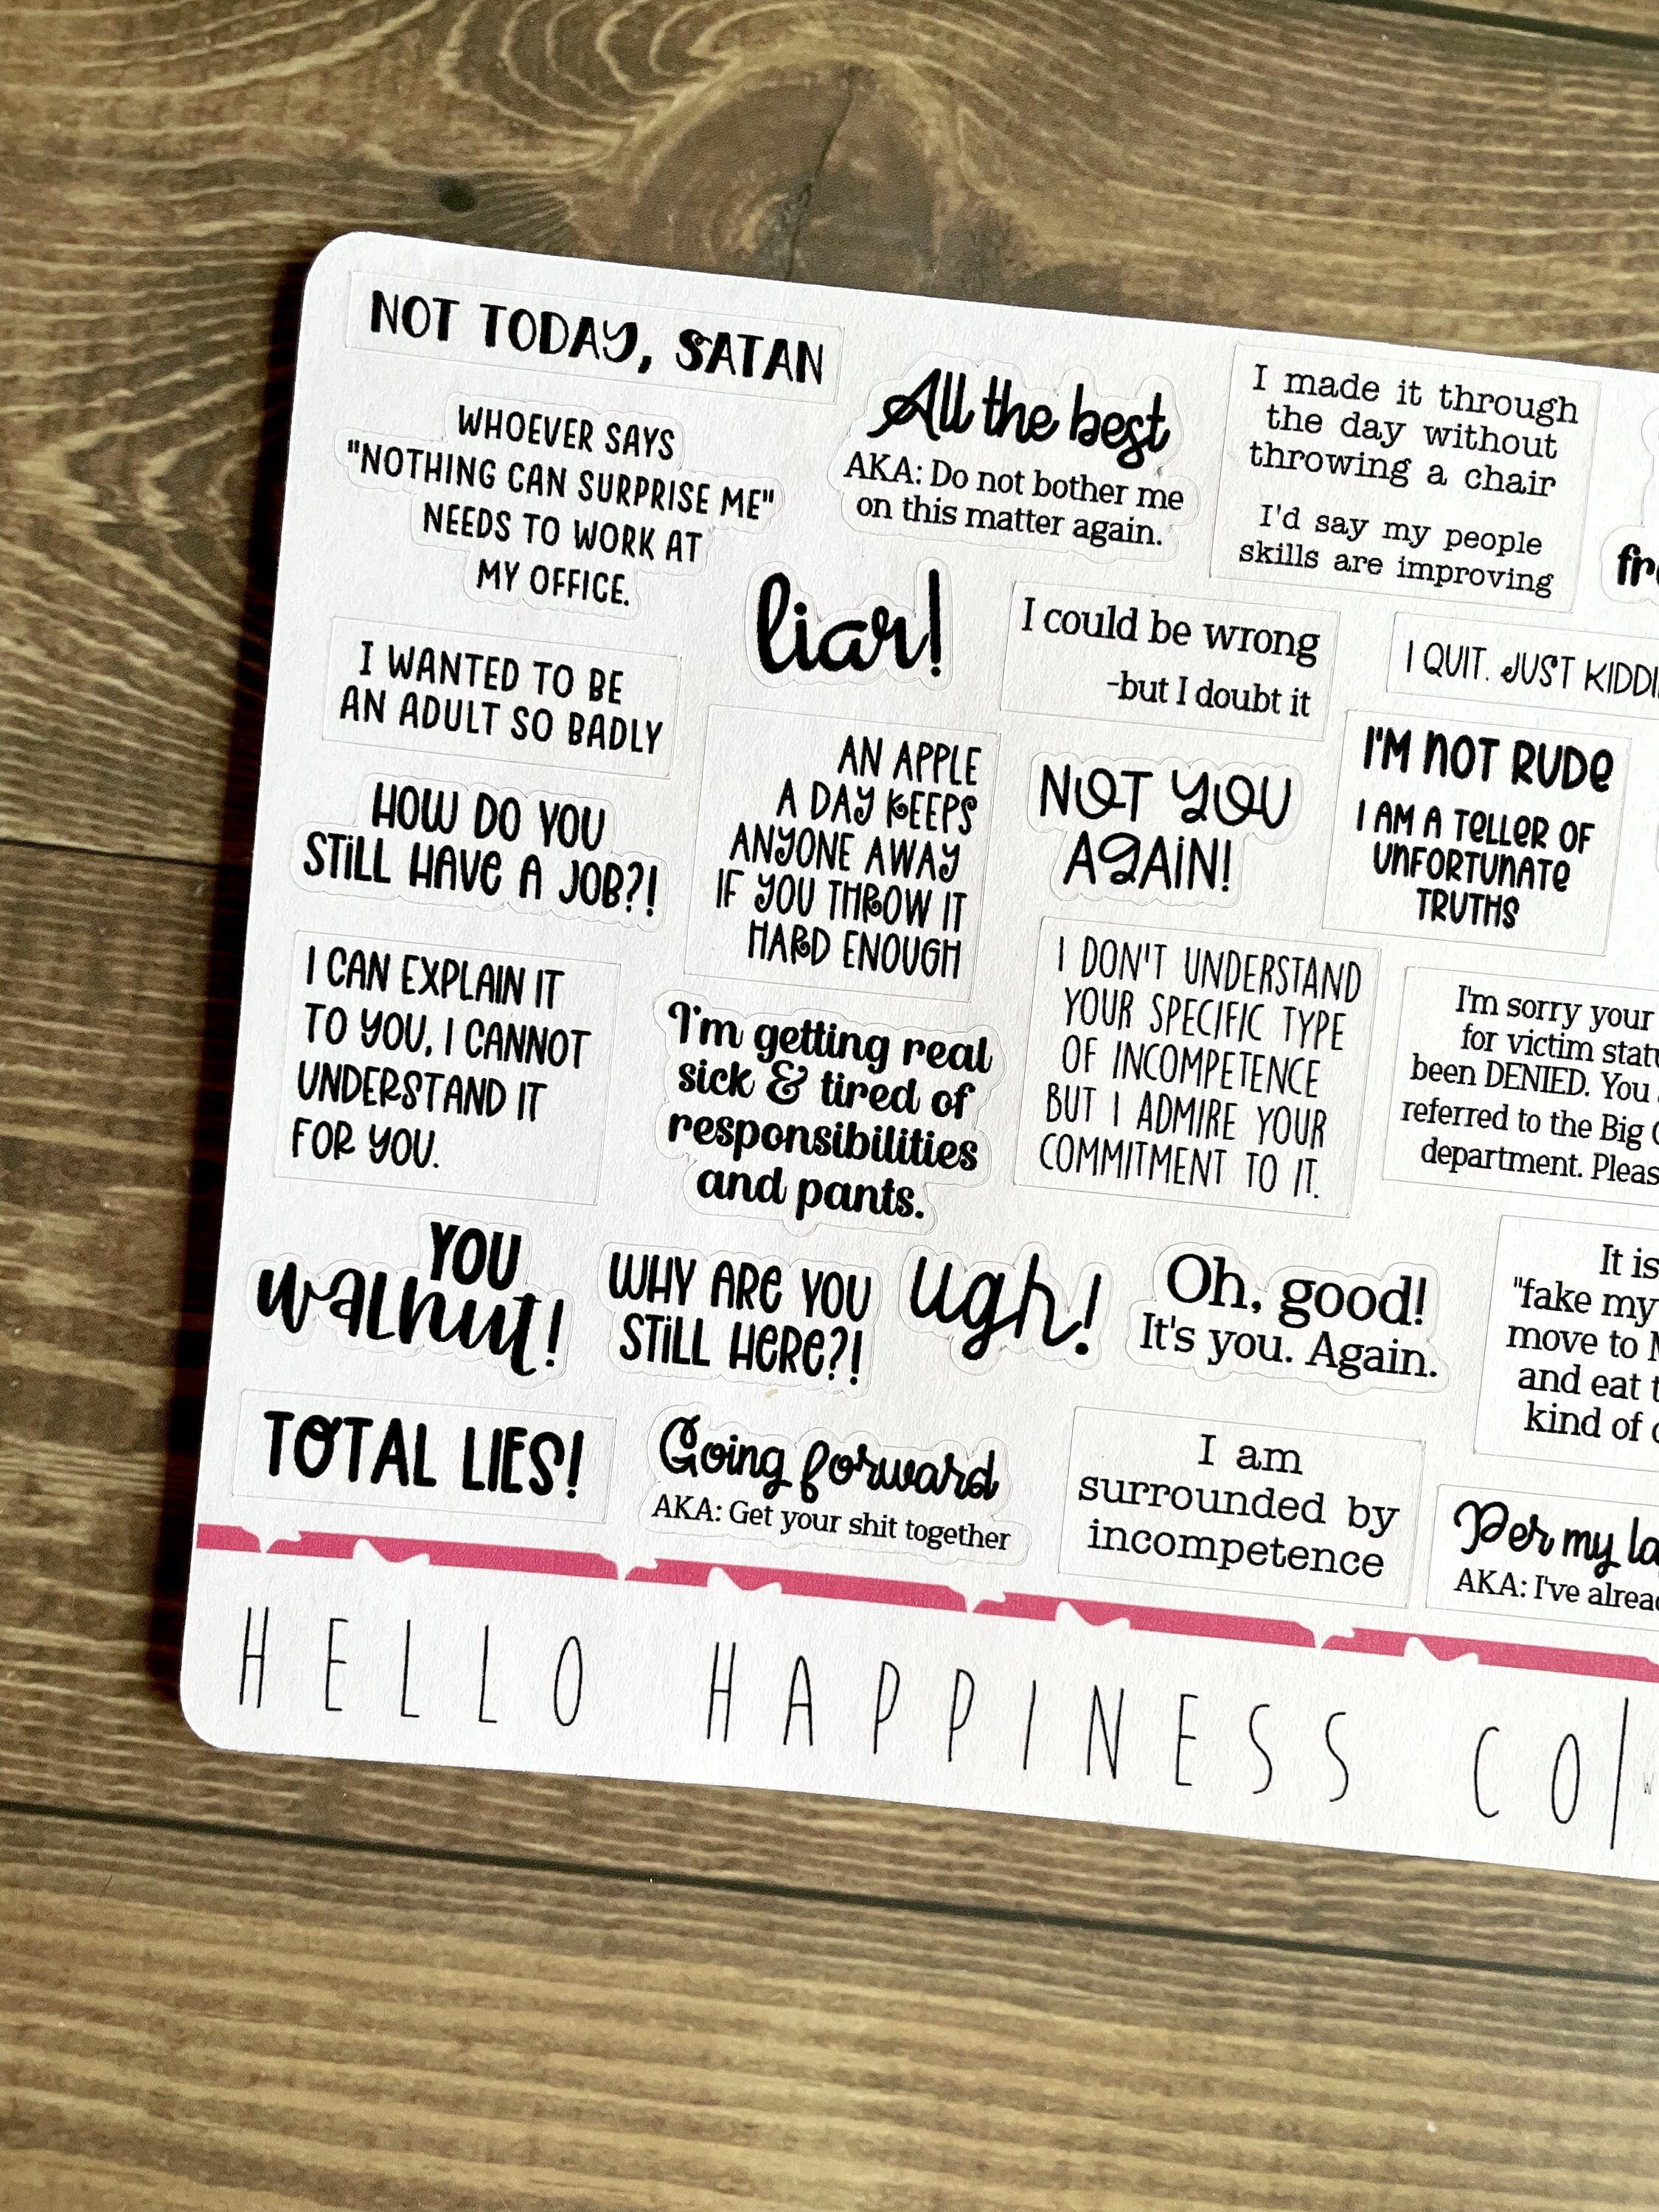 NOT TODAY, SATAN
WHOEVER SAYS
"NOTHING CAN SURPRISE ME"
NEEDS TO WORK AT
MY OFFICE.
All the best
AKA: Do not bother me
on this matter again.
I made it through
the day without
throwing a chair
I'd say my people
skills are improving
liar!
I could be wrong
-but I doubt it
I QUIT. JUST
I WANTED TO BE
AN ADULT SO BADLY
AN APPLE
A DAY KEEPS
ANYONE AWAY
IF YOU THROW IT
HARD ENOUGH
NOT YOU
AGAIN!
I'M NOT RUDE
I AM A TELLER OF
UNFORTUNATE
TRUTHS
HOW DO YOU
STILL HAVE A JOB?!
I CAN EXPLAIN IT
TO YOU, I CANNOT
UNDERSTAND IT
FOR YOU.
I'm getting real
sick & tired of
responsibilities
and pants.
I DON'T UNDERSTAND
YOUR SPECIFIC TYPE
OF INCOMPETENCE
BUT I ADMIRE YOUR
COMMITMENT TO IT.
I'm sorry your
for victim
been DENIED. You
referred to the Big
department.
YOU
walnut!
WHY ARE YOU
STILL HERE?!
ugh!
Oh, good!
It's you. Again.
It is
"fake my
move to
and eat
kind of
TOTAL LIES!
Going forward
AKA: Get your shit together
I am
surrounded by
incompetence
Per my
AKA: I've
HELLO HAPPINESS CO|